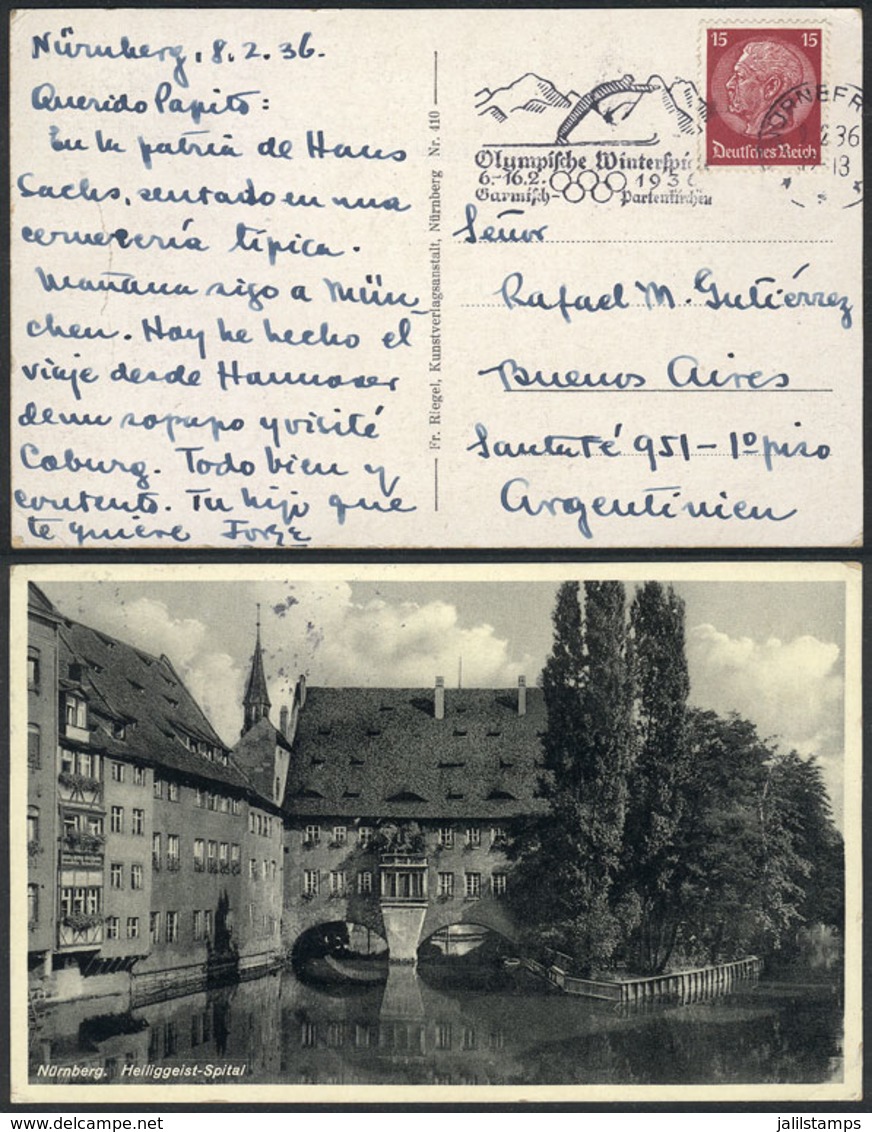 Nürnberg, 8.2.36.
Querido Papito:
En la patria de Hans
Sachs, sentado en una
cervecería típica.
Mañana sigo a Mün-
chen. Hoy he hecho el
viaje desde Hannover
de un sopapo y visité
Coburg. Todo bien y
contento. Tu hijo que
te quiere Jorge
Fr. Riegel, Kunstverlagsanstalt, Nürnberg Nr. 410
15 15
Deutsches Reich
Olympische Winterspie
6.-16.2. 1936
Garmisch- Partenkirchen
36
13
Señor
Rafael M. Gutiérrez
Buenos Aires
951-1º piso
Argentinien
Nürnberg. Heiliggeist-Spital
jalilstamps